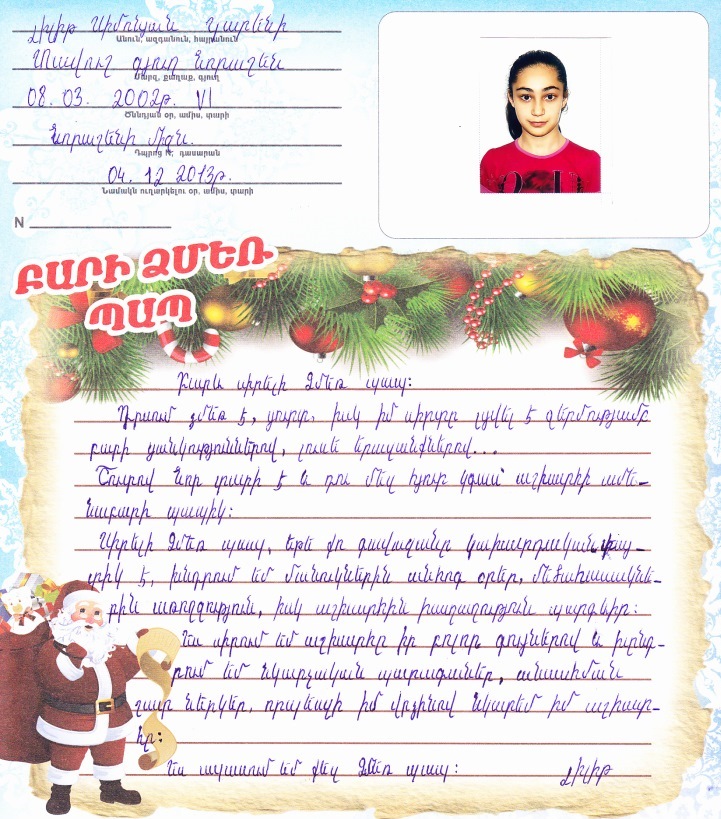 Լիլիթ Սիմոնյան Կարենի
Անուն, ազգանուն, հայրանուն
Տավուշ գյուղ Նորաշեն
Մարզ, քաղաք, գյուղ
08. 03. 2002թ. VI
Ծննդյան օր, ամիս, տարի
Նորաշենի միջն.
Դպրոց №, դասարան
04. 12 2013թ.
Նամակն ուղարկելու օր, ամիս, տարի
N
ԲԱՐԻ ՁՄԵՌ
ՊԱՊ
Բարև սիրելի Ձմեռ պապ:
Դրսում ձմեռ է, ցուրտ, իսկ իմ սիրտը լցվել է ջերմությամբ
բարի ցանկություններով, լուսե երազանքներով...
Շուտով Նոր տարի է և դու մեզ հյուր կգաս՝ աշխարհի ամե-
նաբարի պապիկ:
Սիրելի Ձմեռ պապ, եթե քո գավազանը կախարդական փայ-
տիկ է, խնդրում եմ մանուկներին անհոգ օրեր, մեծահասակնե-
րին առողջություն, իսկ աշխարհին խաղաղություն պարգևիր:
Ես սիրում եմ աշխարհը իր բոլոր գույներով և խընդ-
րում եմ նկարչական պարագաներ, անսահման
շատ ներկեր, որպեսզի իմ վրձինով նկարեմ իմ աշխար-
հը:
Ես սպասում եմ քեզ Ձմեռ պապ: Լիլիթ